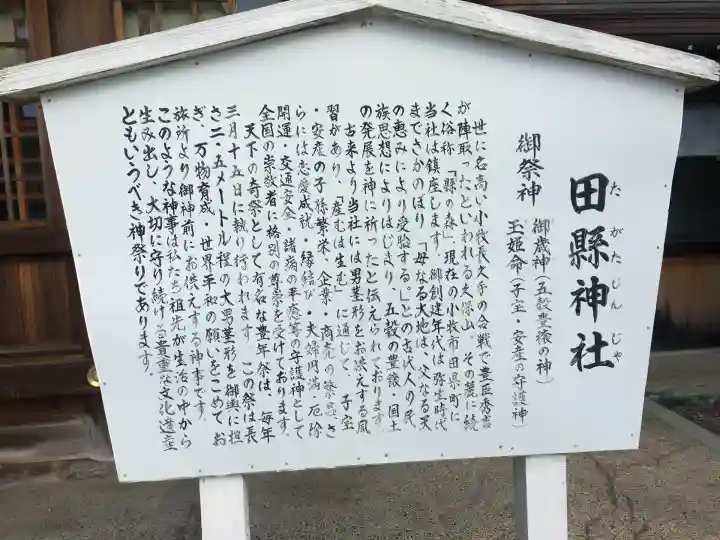 田縣神社
たがたじんじゃ
御祭神
御歳神(五穀豊穣の神)
玉姫命(子宝・安産の守護神)
世に名高い小牧長久手の合戦で豊臣秀吉
が陣取ったといわれる久保山。その麓に続
く俗称「縣の森」現在の小牧市田県町に
当社は鎮座します。御創建年代は弥生時代
までさかのぼり「母なる大地は、父なる天
の恵みにより受胎する。」との古代人の民
族思想によりはじまり、五穀の豊穣・国土
の発展を神に祈ったと伝えられております。
古来より当社には男茎形をお供えする風
習があり、「産むは生む」に通じて、子宝
・安産の子孫繁栄・企業・商売の繁
らには恋愛成就・縁結び・夫婦円満・厄除
開運・交通安全・諸病の平癒等の守護神として
全国の崇敬者に格別の尊崇を受けております。
天下の奇祭として有名な豊年祭は、毎年
三月十五日に執り行われます。この祭は長
さ二・五メートル程の大男茎形を御輿に担
ぎ、万物育成・世界平和の願いをこめてお
旅所より御神前にお供えする神事です。
このような神事は私たち祖先が生活の中から
生み出し、大切に守り続ける貴重な文化遺産
ともいうべき神祭りであります。